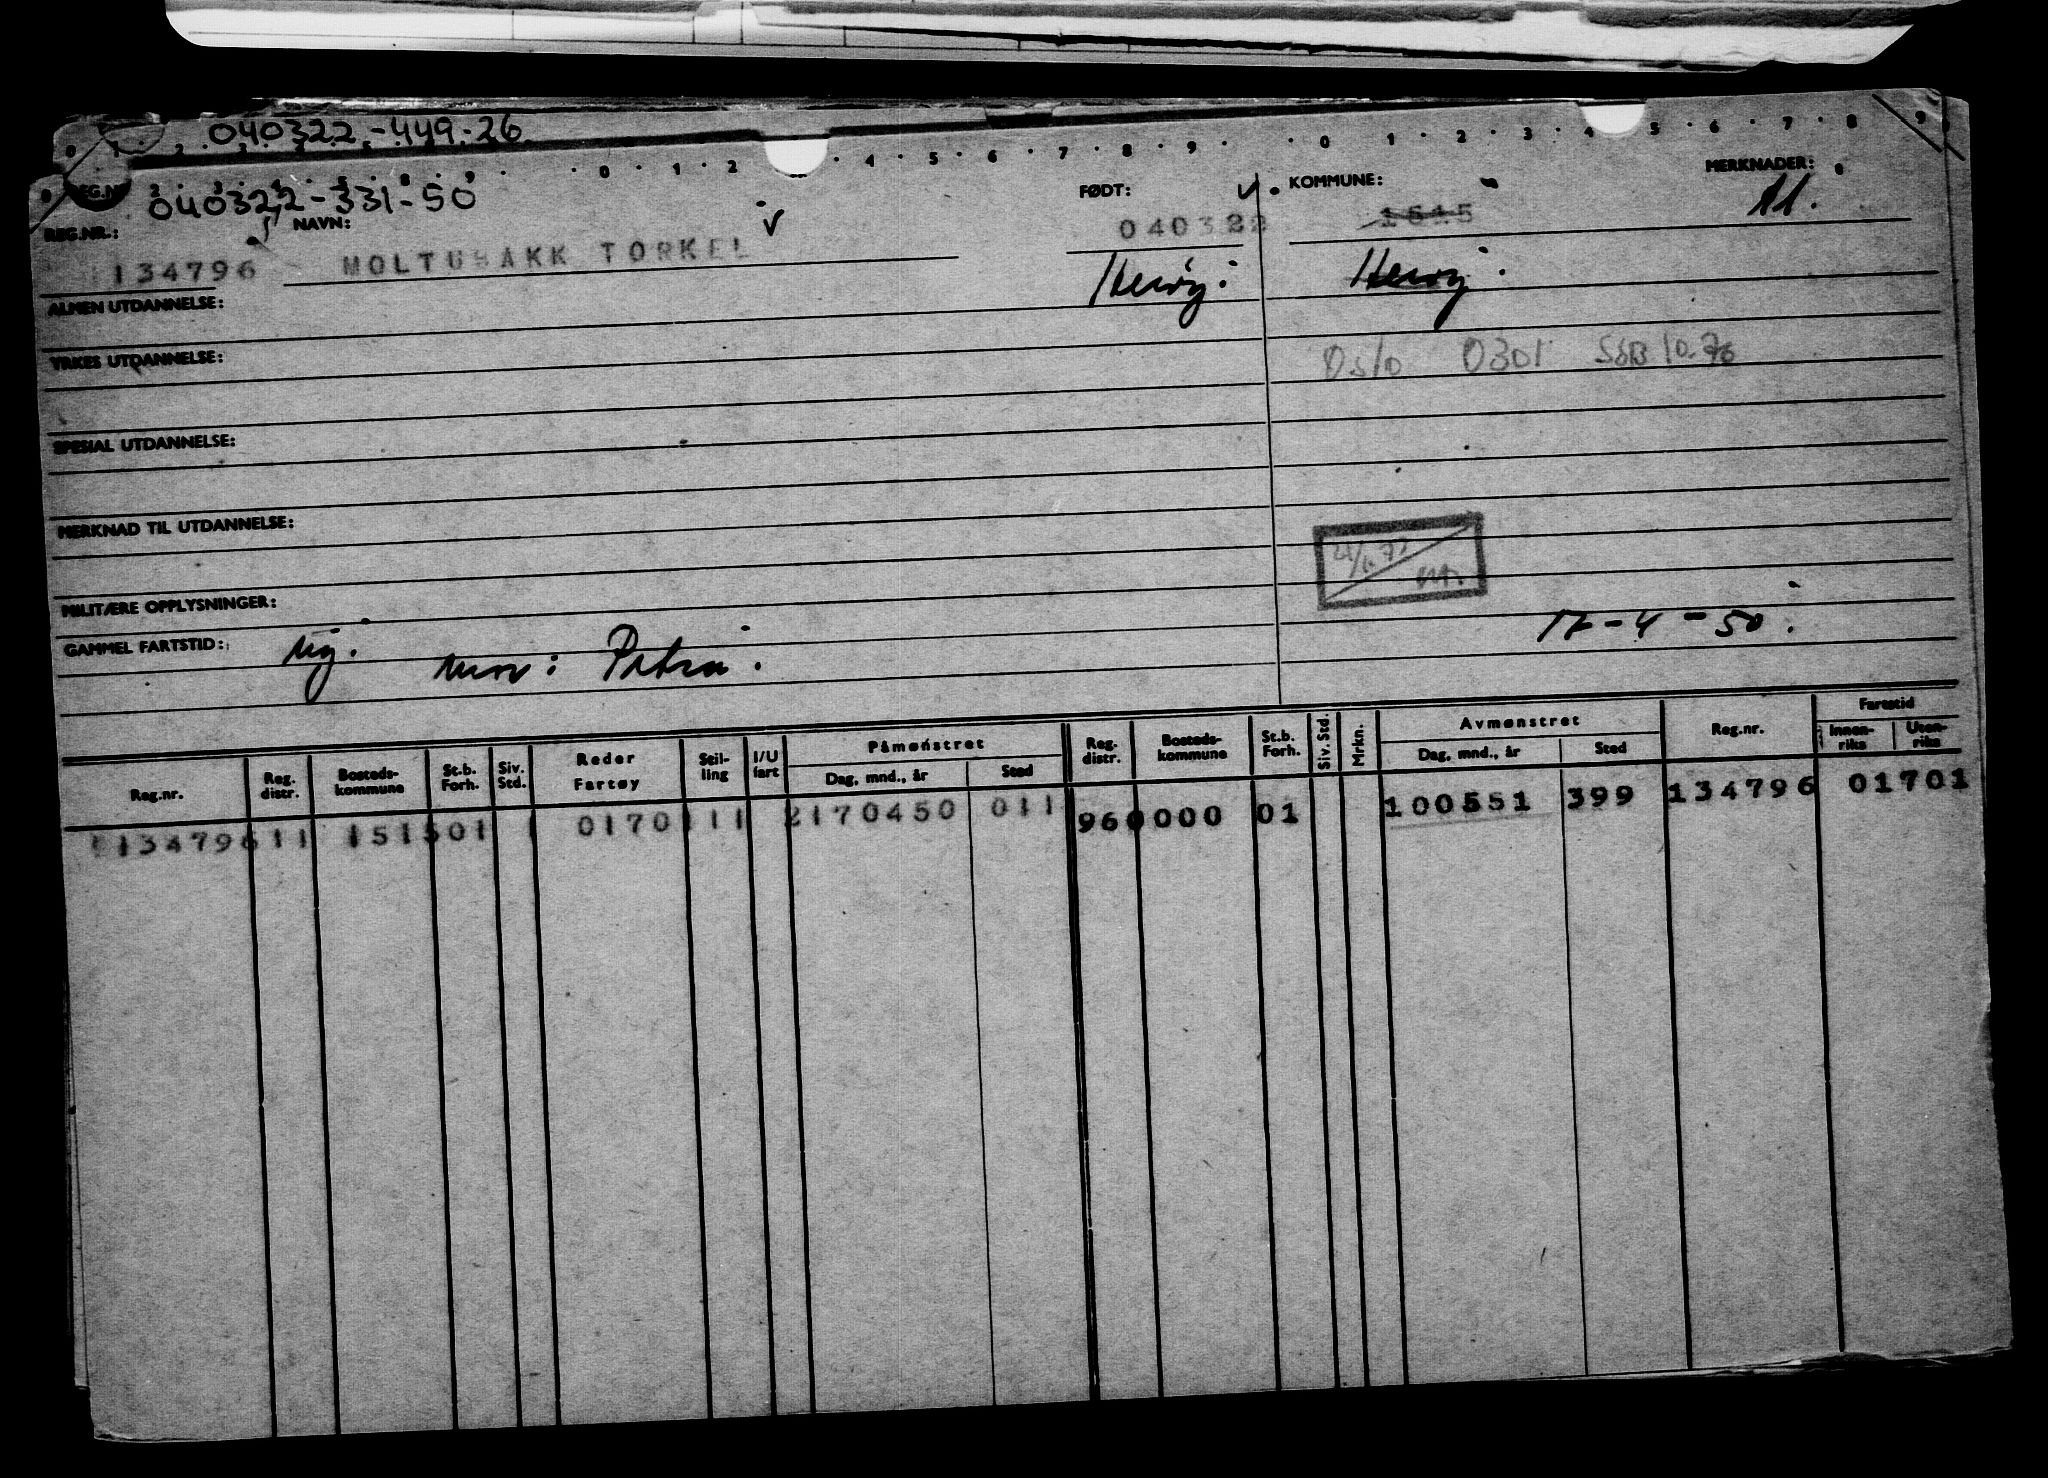 040322-449-26
040322-331-50
REG.NR.:
NAVN:
FØDT:
KOMMUNE:
MERKNADER:
134796
MOLTUBAKK TORKEL
040322
1515
Herøy.
Herøy.
ALMEN UTDANNELSE:
YRKES UTDANNELSE:
Oslo 0301 SSB 10.76
SPESIAL UTDANNELSE:
MERKNAD TIL UTDANNELSE:
MILITÆRE OPPLYSNINGER:
17-4-50.
GAMMEL FARTSTID:
mor: Petra.
Reg.nr.
Reg. distr.
Bosteds-kommune
St.b. Forh.
Siv. Std.
Reder Fartøy
Stil-ling
I/U fart
Påmønstret
Dag, mnd., år
Sted
Reg. distr.
Bosteds-kommune
St.b. Forh.
Siv. Std.
Mrkn.
Avmønstret
Dag, mnd., år
Sted
Reg.nr.
Fartstid
Innen-riks
Uten-riks
134796 11 1515 01 1 0170 111 2170450 011 960000 01 100551 399 134796 01701